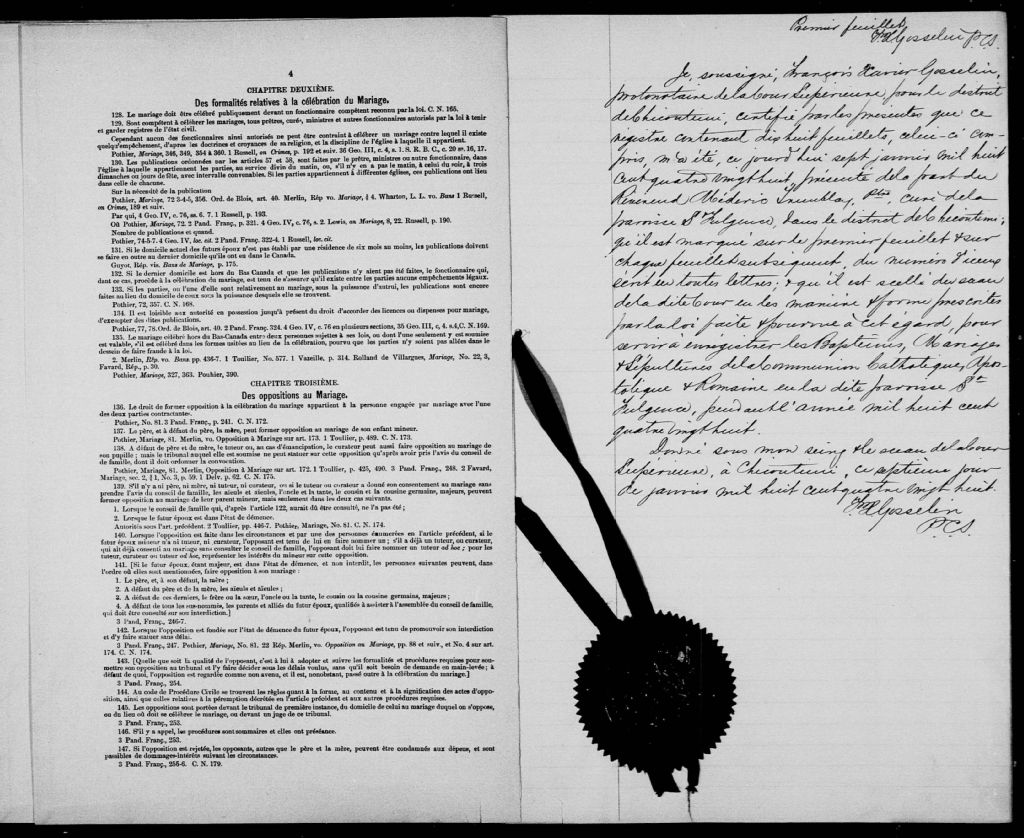 4
CHAPITRE DEUXIÈME.
Des formalités relatives à la célébration du Mariage.
128. Le mariage doit être célébré publiquement devant un fonctionnaire compétent reconnu par la loi. C. N. 165.
129. Sont compétents à célébrer les mariages, tous prêtres, curés, ministres et autres fonctionnaires autorisés par la loi à tenir
et garder registres de l'état civil.
Cependant aucun des fonctionnaires ainsi autorisés ne peut être contraint à célébrer un mariage contre lequel il existe
quelqu'empêchement, d'après les doctrines et croyances de sa religion, et la discipline de l'église à laquelle il appartient.
Pothier, Mariage, 346, 349, 354 à 360. 1 Russell, on Crimes, p. 192 et suiv. 36 Geo. III, c. 4, s. 1. S. R. B. C., c. 20 ss. 16, 17.
130. Les publications ordonnées par les articles 57 et 58, sont faites par le prêtre, ministre ou autre fonctionnaire, dans
l'église à laquelle appartiennent les parties, au service divin du matin, ou, s'il n'y en a pas le matin, à celui du soir, à trois
dimanches ou jours de fête, avec intervalle convenables. Si les parties appartiennent à différentes églises, ces publications ont lieu
dans celle de chacune.
Sur la nécessité de la publication
Pothier, Mariage, 72 3-4-5, 356. Ord. de Blois, art. 40. Merlin, Rép vo. Mariage, § 4. Wharton, L. L. vo. Bans 1 Russell,
on Crimes, 189 et suiv.
Par qui, 4 Geo. IV, c. 76, ss. 6. 7. 1 Russell, p. 193.
Où Pothier, Mariage, 72. 2 Pand. Franç., p. 321. 4 Geo. IV, c. 76, s. 2. Lewis, on Mariage, 8, 22. Russell, p. 190.
Nombre de publications et quand.
Pothier, 74-5-7. 4 Geo. IV, loc. cit. 2 Pand. Franç. 322-4. 1 Russell, loc. cit.
131. Si le domicile actuel des futurs époux n'est pas établi par une résidence de six mois au moins, les publications doivent
se faire en outre au dernier domicile qu'ils ont eu dans le Canada.
Guyot, Rép. vis. Bans de Mariage, p. 175.
132. Si le dernier domicile est hors du Bas Canada et que les publications n'y aient pas été faites, le fonctionnaire qui,
dans ce cas, procède à la célébration du mariage, est tenu de s'assurer qu'il existe entre les parties aucuns empêchements légaux.
133. Si les parties, ou l'une d'elle sont relativement au mariage, sous la puissance d'autrui, les publications sont encore
faites au lieu du domicile de ceux sous la puissance desquels elle se trouvent.
Pothier, 72, 357. C. N. 168.
134. Il est loisible aux autorité en possession jusqu'à présent du droit d'accorder des licences ou dispenses pour mariage,
d'exempter des dites publications.
Pothier, 77, 78. Ord. de Blois, art. 40. 2 Pand. Franç. 324. 4 Geo. IV, c. 76 en plusieurs sections, 35 Geo. III, c. 4. s.4, C. N. 169.
135. Le mariage célébré hors du Bas-Canada entre deux personnes sujettes à ses lois, ou dont l'une seulement y est soumise
est valable, s'il est célébré dans les formes usitées au lieu de la célébration, pourvu que les parties n'y soient pas allées dans le
dessein de faire fraude à la loi.
2. Merlin, Rép. vo. Bans. pp. 436-7. 1 Toullier, No. 577. 1 Vazeille, p. 314. Rolland de Villargues, Mariage, No. 22, 3,
Favard, Rép., p. 30.
Pothier, Mariage, 327, 363. Pouhier, 390.
CHAPITRE TROISIÈME.
Des oppositions au Mariage.
136. Le droit de former opposition à la célébration du mariage appartient à la personne engagée par mariage avec l'une
des deux parties contractantes.
Pothier, No. 81. 3 Pand. Franç., p. 241. C. N. 172.
137. Le père, et à défaut du père, la mère, peut former opposition au mariage de son enfant mineur.
Pothier, Mariage, 81. Merlin, vo. Opposition à Mariage sur art. 173. 1 Toullier, p. 489. C. N. 173.
138. A défaut de père et de mère, le tuteur ou, au cas d'émancipation, le curateur peut aussi faire opposition au mariage de
son pupille ; mais le tribunal auquel elle est soumise ne peut statuer sur cette opposition qu'après avoir pris l'avis du conseil de
de famille, dont il doit ordonner la convocation.
Pothier, Mariage, 81. Merlin, Opposition à Mariage sur art. 172. 1 Toullier, p. 425, 490. 3 Pand. Franç., 248. 2 Favard,
Mariage, sec. 2, § 1, No. 3, p. 59. 1 Delv. p. 62. C. N. 175.
139. S'il n'y a ni père, ni mère, ni tuteur, ni curateur, ou si le tuteur ou curateur a donné son consentement au mariage sans
prendre l'avis du conseil de famille, les aïeuls et aïeules, l'oncle et la tante, le cousin et la cousine germains, majeurs, peuvent
former opposition au mariage de leur parent mineur, mais seulement dans les deux cas suivants.
1. Lorsque le conseil de famille qui, d'après l'article 122, aurait dû être consulté, ne l'a pas été ;
2. Lorsque le futur époux est dans l'état de démence.
Autorités sous l'art. précédent. 2 Toullier, pp. 446-7. Pothier, Mariage, No. 81. C. N. 174.
140. Lorsque l'opposition est faite dans les circonstances et par une des personnes énumérées en l'article précédent, si le
futur époux mineur n'a ni tuteur, ni curateur, l'opposant est tenu de lui en faire nommer un ; s'il a déjà un tuteur, ou curateur,
qui ait déjà consenti au mariage sans consulter le conseil de famille, l'opposant doit lui faire nommer un tuteur ad hoc ; pour les
tuteur, curateur ou tuteur ad hoc, représenter les intérêts du mineur sur cette opposition.
141. [Si le futur époux, étant majeur, est dans l'état de démence, et non interdit, les personnes suivantes peuvent, dans
l'ordre où elles sont mentionnées, faire opposition à son mariage :
1. Le père, et, à son défaut, la mère ;
2. A défaut du père et de la mère, les aïeuls et aïeules ;
3. A défaut de ces derniers, le frère ou la sœur, l'oncle ou la tante, le cousin ou la cousine germains, majeurs ;
4. A défaut de tous les sus-nommés, les parents et alliés du futur époux, qualifiés à assister à l'assemblée du conseil de famille,
qui doit être consulté sur son interdiction.]
3 Pand, Franç., 246-7.
142. Lorsque l'opposition est fondée sur l'état de démence du futur époux, l'opposant est tenu de promouvoir son interdiction
et d'y faire statuer sans délai.
3 Pand. Franç., 247. Pothier, Mariage, No. 81. 22 Rép. Merlin, vo. Opposition au Mariage, pp. 88 et suiv., et No. 4 sur art.
174. C. N. 174.
143. [Quelle que soit la qualité de l'opposant, c'est à lui à adopter et suivre les formalités et procédures requises pour sou-
mettre son opposition au tribunal et l'y faire décider sous les délais voulus, sans qu'il soit besoin de demande en main-levée ; à
défaut de quoi, l'opposition est regardée comme non avenu, et il est, nonobstant, passé outre à la célébration du mariage.]
3 Pand. Franç., 254.
144. Au code de Procédure Civile se trouvent les règles quant à la forme, au contenu et à la signification des actes d'oppo-
sition, ainsi que celles relatives à la péremption décrétée en l'article précédent et aux autres procédures requises.
145. Les oppositions sont portées devant le tribunal de première instance, du domicile de celui au mariage duquel on s'oppose,
ou du lieu où doit se célébrer le mariage, ou devant un juge de ce tribunal.
3 Pand. Franç., 253.
146. S'il y a appel, les procédures sont sommaires et elles ont préséance.
3 Pand. Franç., 253.
147. Si l'opposition est rejetée, les opposants, autres que le père et la mère, peuvent être condamnés aux dépens, et sont
passibles de dommages-intérêts suivant les circonstances.
3 Pand. Franç., 255-6. C. N. 179.
Premier feuillet
F.X. Gosselin P.C.S.
Je, soussigné, François Xavier Gosselin,
protonotaire de la Cour Supérieure pour le district
de Chicoutimi, certifie par les présentes que ce
registre contenant dix huit feuillets, celui-ci com-
pris, m'a été, ce jourd'hui sept janvier mil huit
cent quatre vingt huit, présenté de la part du
Révérend Méderic Tremblay, Ptre, curé de la
paroisse St Fulgence, dans le district de Chicoutimi;
qu'il est marqué sur le premier feuillet & sur
chaque feuillet subséquent, du numéro d'iceux
écrit en toutes lettres; & qu'il est scellé du sceau
de la dite Cour en la manière & forme prescrites
par la loi faite & pourvue à cet égard, pour
servir à enregistrer les Baptêmes, Mariages
& Sépultures de la Communion Catholique, Apos-
tolique & Romaine en la dite paroisse St
Fulgence, pendant l'année mil huit cent
quatre vingt huit.
Donné sous mon seing & le sceau de la Cour
Supérieure, à Chicoutimi, ce septième jour
de janvier mil huit cent quatre vingt huit.
F.X. Gosselin
P.C.S.